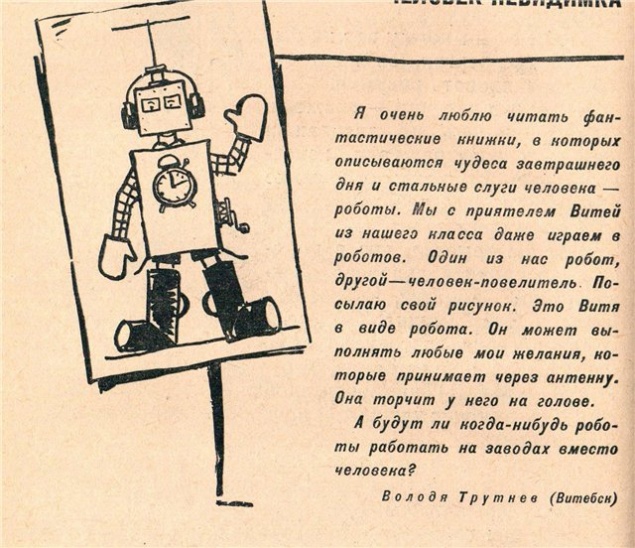 ЧЕЛОВЕК-НЕВИДИМКА
Я очень люблю читать фан-
тастические книжки, в которых
описываются чудеса завтрашнего
дня и стальные слуги человека —
роботы. Мы с приятелем Витей
из нашего класса даже играем в
роботов. Один из нас робот,
другой—человек-повелитель. По-
сылаю свой рисунок. Это Витя
в виде робота. Он может вы-
полнять любые мои желания, ко-
торые принимает через антенну.
Она торчит у него на голове.
А будут ли когда-нибудь робо-
ты работать на заводах вместо
человека?
Володя Трутнев (Витебск)